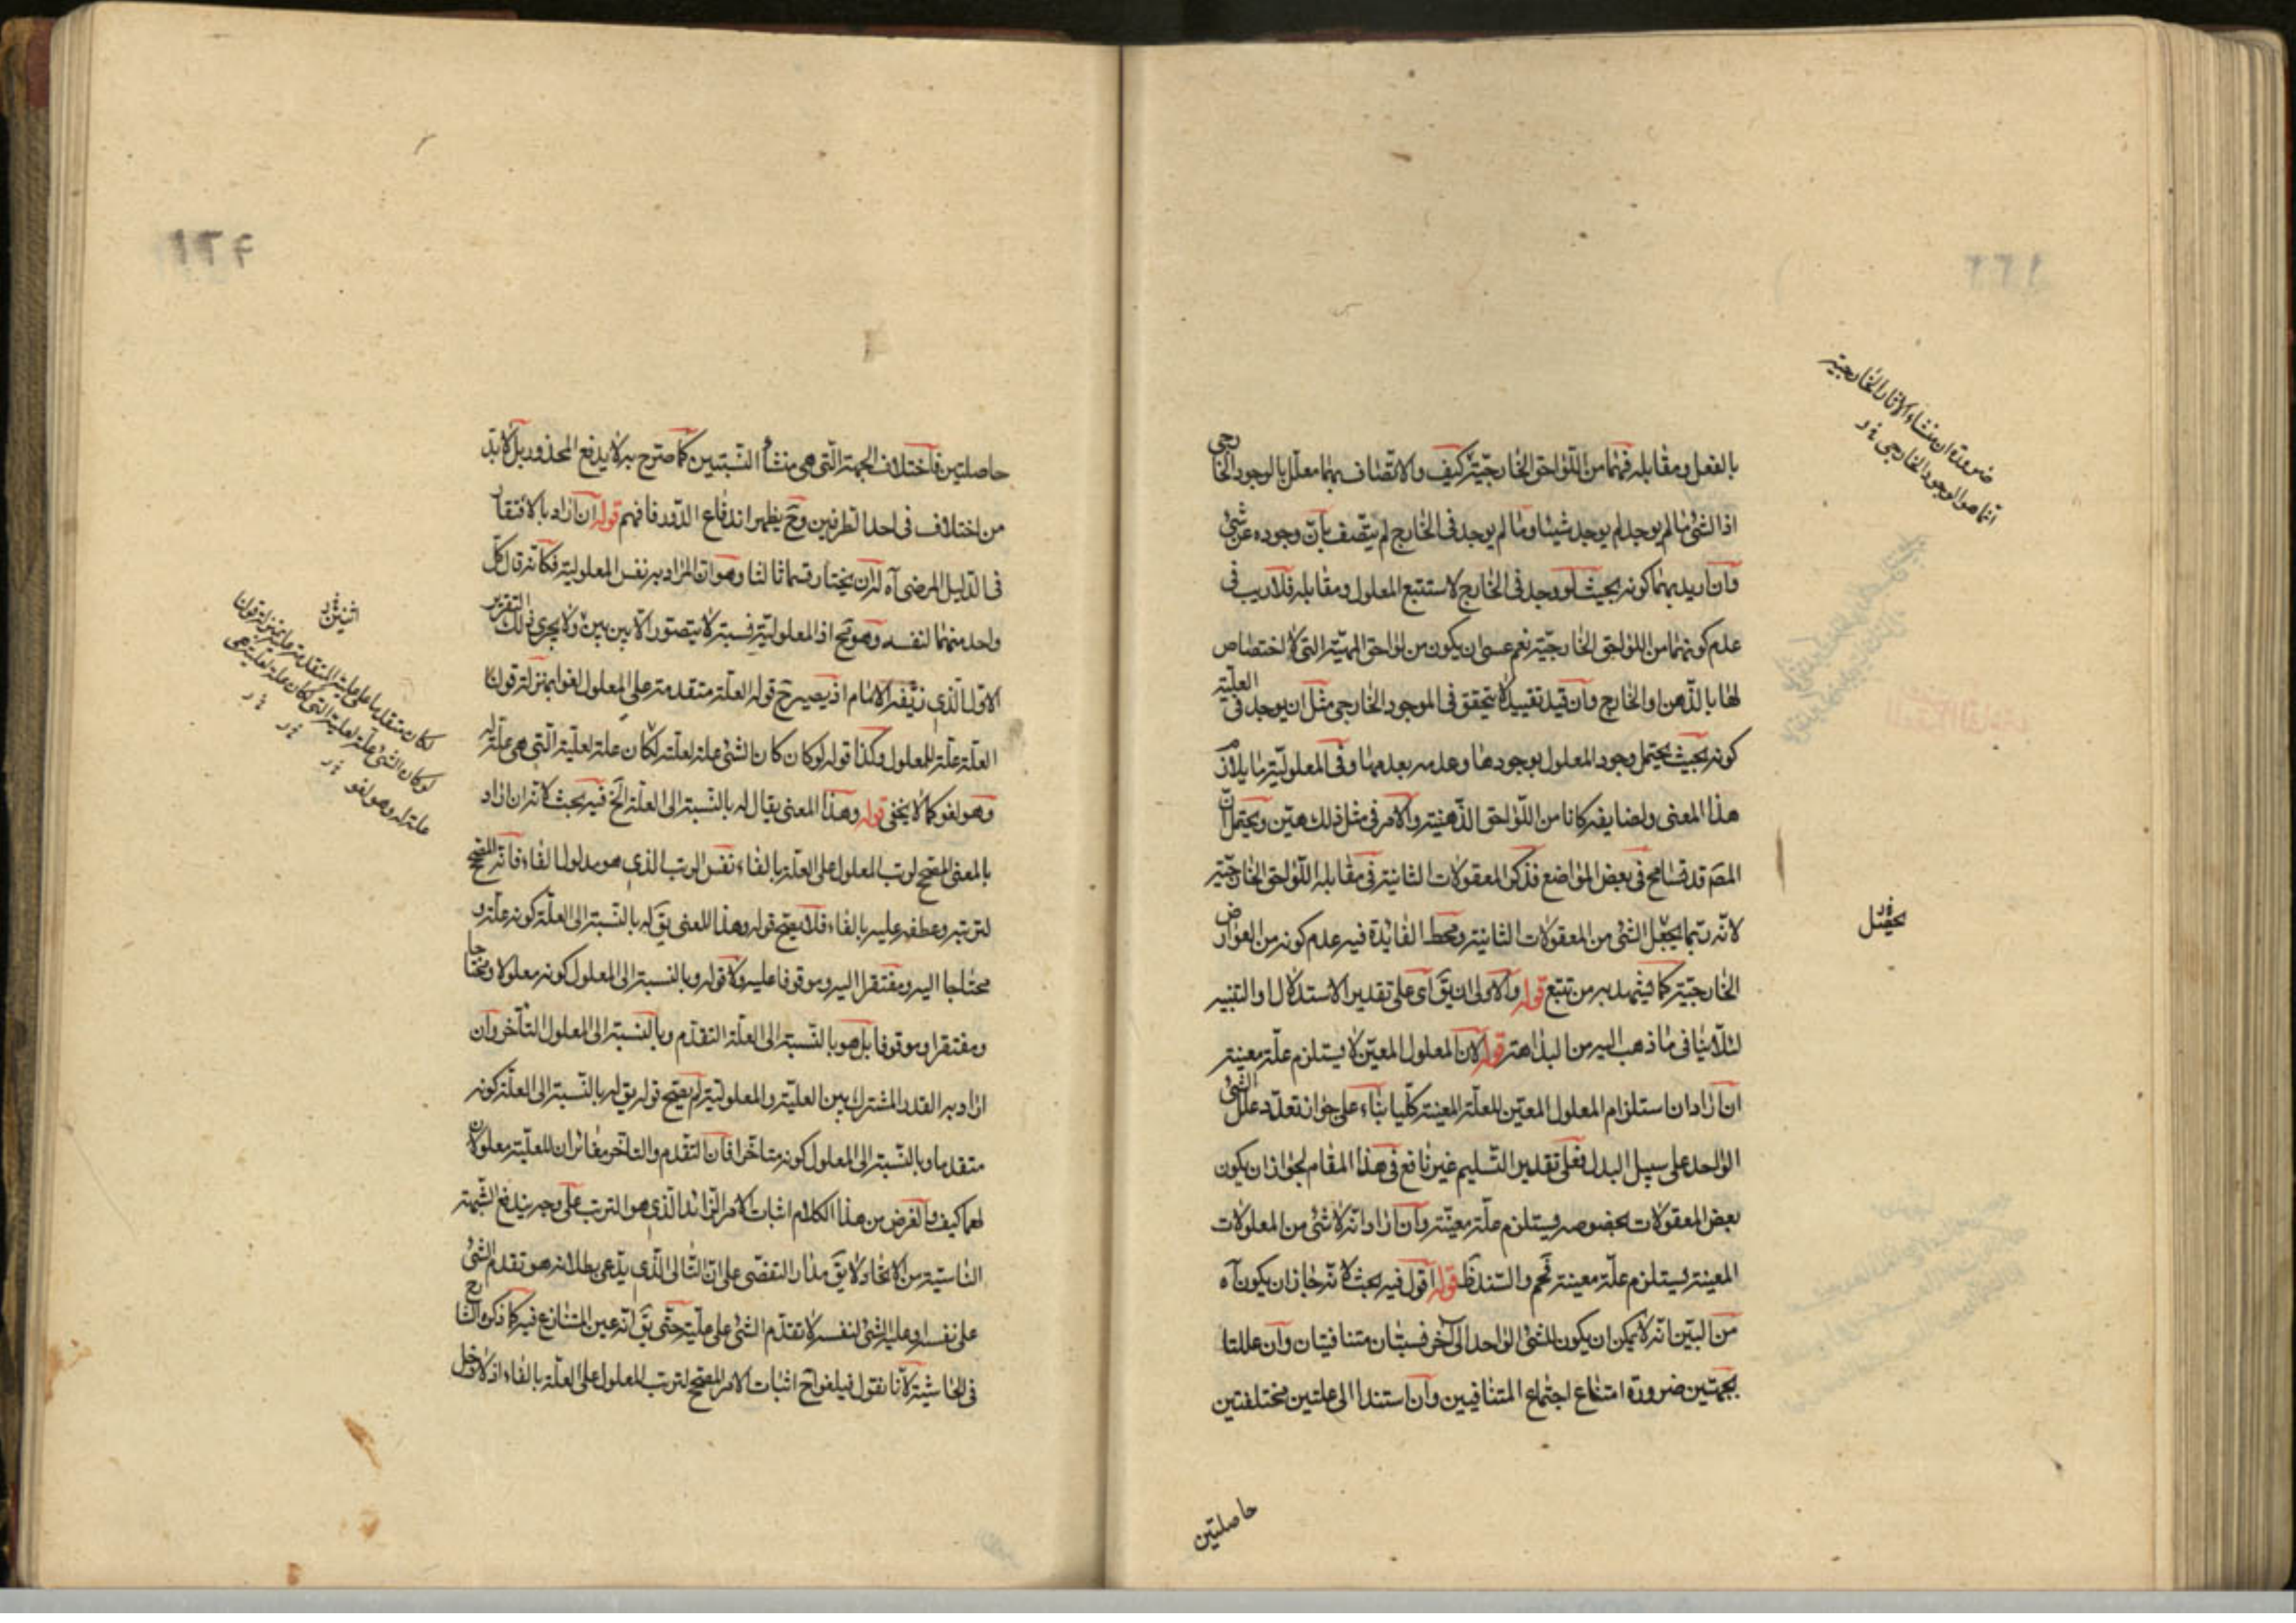 بالفعل ومقابله فهما من اللواحق الخارجية كيف والاتصاف بهما معلل بالوجود الخارجى
اذ الشئ ما لم يوجد لم يوجد شيئا وما لم يوجد فى الخارج لم يتصف بان وجوده عن شئ
وان اريد بهما كونه بحيث لو وجد فى الخارج لاستتبع المعلول ومقابله فلا ريب فى
عدم كونهما من اللواحق الخارجية نعم عسى ان يكون من لواحق المهية التى لا اختصاص
لها بالذهن والخارج وان قيد تقييدا لا يتحقق فى الموجود الخارجى مثل ان يوجد فى العلية
كونه بحيث يحتمل وجود المعلول بوجودها وعدمه بعدمها وفى المعلولية ما يلازم
هذا المعنى ولضايفه كانا من اللواحق الذهنية والامر فى مثل ذلك هين ويحتمل ان
المص قد تسامح فى بعض المواضع فذكر المعقولات الثانية فى مقابله اللواحق الخارجية
لانه ربما يجعل الشئ من المعقولات الثانية ومحط الفايدة فيه عدم كونه من العوارض
الخارجية كما يشهد به من تتبع قوله والاولى ان يق اى على تقدير الاستدلال والتنبيه
لئلا ينافى ما ذهب اليه من البداهة قوله لان المعلول المعين لا يستلزم علة معينة
ان اراد ان استلزام المعلول المعين للعلة المعينة كليا بناء على جواز تعدد علل الشئ
الواحد على سبيل البدل فعلى تقدير التسليم غير نافع فى هذا المقام لجواز ان يكون
بعض المعقولات بخصوصه يستلزم علة معينة وان اراد انه لا شئ من المعلولات
المعينة يستلزم علة معينة فمم والسند ظ قوله اقول فيه بحث لانه جاز ان يكون آه
من البين انه لا يمكن ان يكون للشئ الواحد الى آخر نسبتان متنافيتان وان عللتا
بجهتين ضرورة امتناع اجتماع المتنافيين وان استندا الى علتين مختلفتين
حاصلتين
ضرورة ان منشاء الاثار الخارجية
انما هو الوجود الخارجى
يحصل
حاصلتين فاختلاف الجهة التى هى منشأ النسبتين كما صرح به لا يدفع المحذور بل لا بد
من اختلاف فى احد الطرفين وح يظهر اندفاع الدور فافهم قوله ان اراد بالافتقار
فى الدليل المرضى آه له ان يختار قسما ثالثا وهو ان المراد به نفس المعلولية فكانه قال كل
واحد منهما لنفسه وهو مح اذ المعلولية نسبة لا يتصور الا بين بين ولا يجرى ذلك التقرير
الاول الذى زيفه الامام اذ يصير ح قوله العلة متقدمة على المعلول لغوا بمنزلة قولنا
العلة علة للمعلول وكذا قوله لو كان كان الشئ علة لعلته لكان علة لعلية التى هى علة له
وهو لغو كما لا يخفى قوله وهذا المعنى يقال له بالنسبة الى العلة الخ فيه بحث لانه ان اراد
بالمعنى المصحح لترتب المعلول على العلة بالفاء نفس الترتب الذى هو مدلول الفاء فانه المصحح
لترتبه وعطفه عليه بالفاء فلا يصح قوله وهذا المعنى يق له بالنسبة الى العلة كونه علة و
محتاجا اليه ومفتقرا اليه وموقوفا عليه ولا قوله وبالنسبة الى المعلول كونه معلولا ومحتاجا
ومفتقرا وموقوفا بل هو بالنسبة الى العلة التقدم وبالنسبة الى المعلول التأخر وان
اراد به القدر المشترك بين العلية والمعلولية لم يصح قوله يق له بالنسبة الى العلة كونه
متقدما وبالنسبة الى المعلول كونه متاخرا فان التقدم والتاخر مغائران للعلية معلولان
لهما كيف والغرض من هذا الكلام اثبات الامر الزائد الذى هو الترتب على وجه يندفع الشبهة
الناشية من الاتحاد ولا يق مدار التفصى على ان التالى الذى يدعى بطلانه هو تقدم الشئ
على نفسه او علية الشئ لنفسه لا تقدم الشئ على علية حتى يق انه عين المتنازع فيه كما ذكره الشارح
فى الحاشية لانا نقول فيلغو ح اثبات الامر المصحح لترتب المعلول على العلة بالفاء اذ لا دخل
لكان متقدما على علية المتقدمة عليه بمنزلة قولنا
لو كان الشئ علة لعلية التى لكان علة لعلية هى
علة له وهو لغو